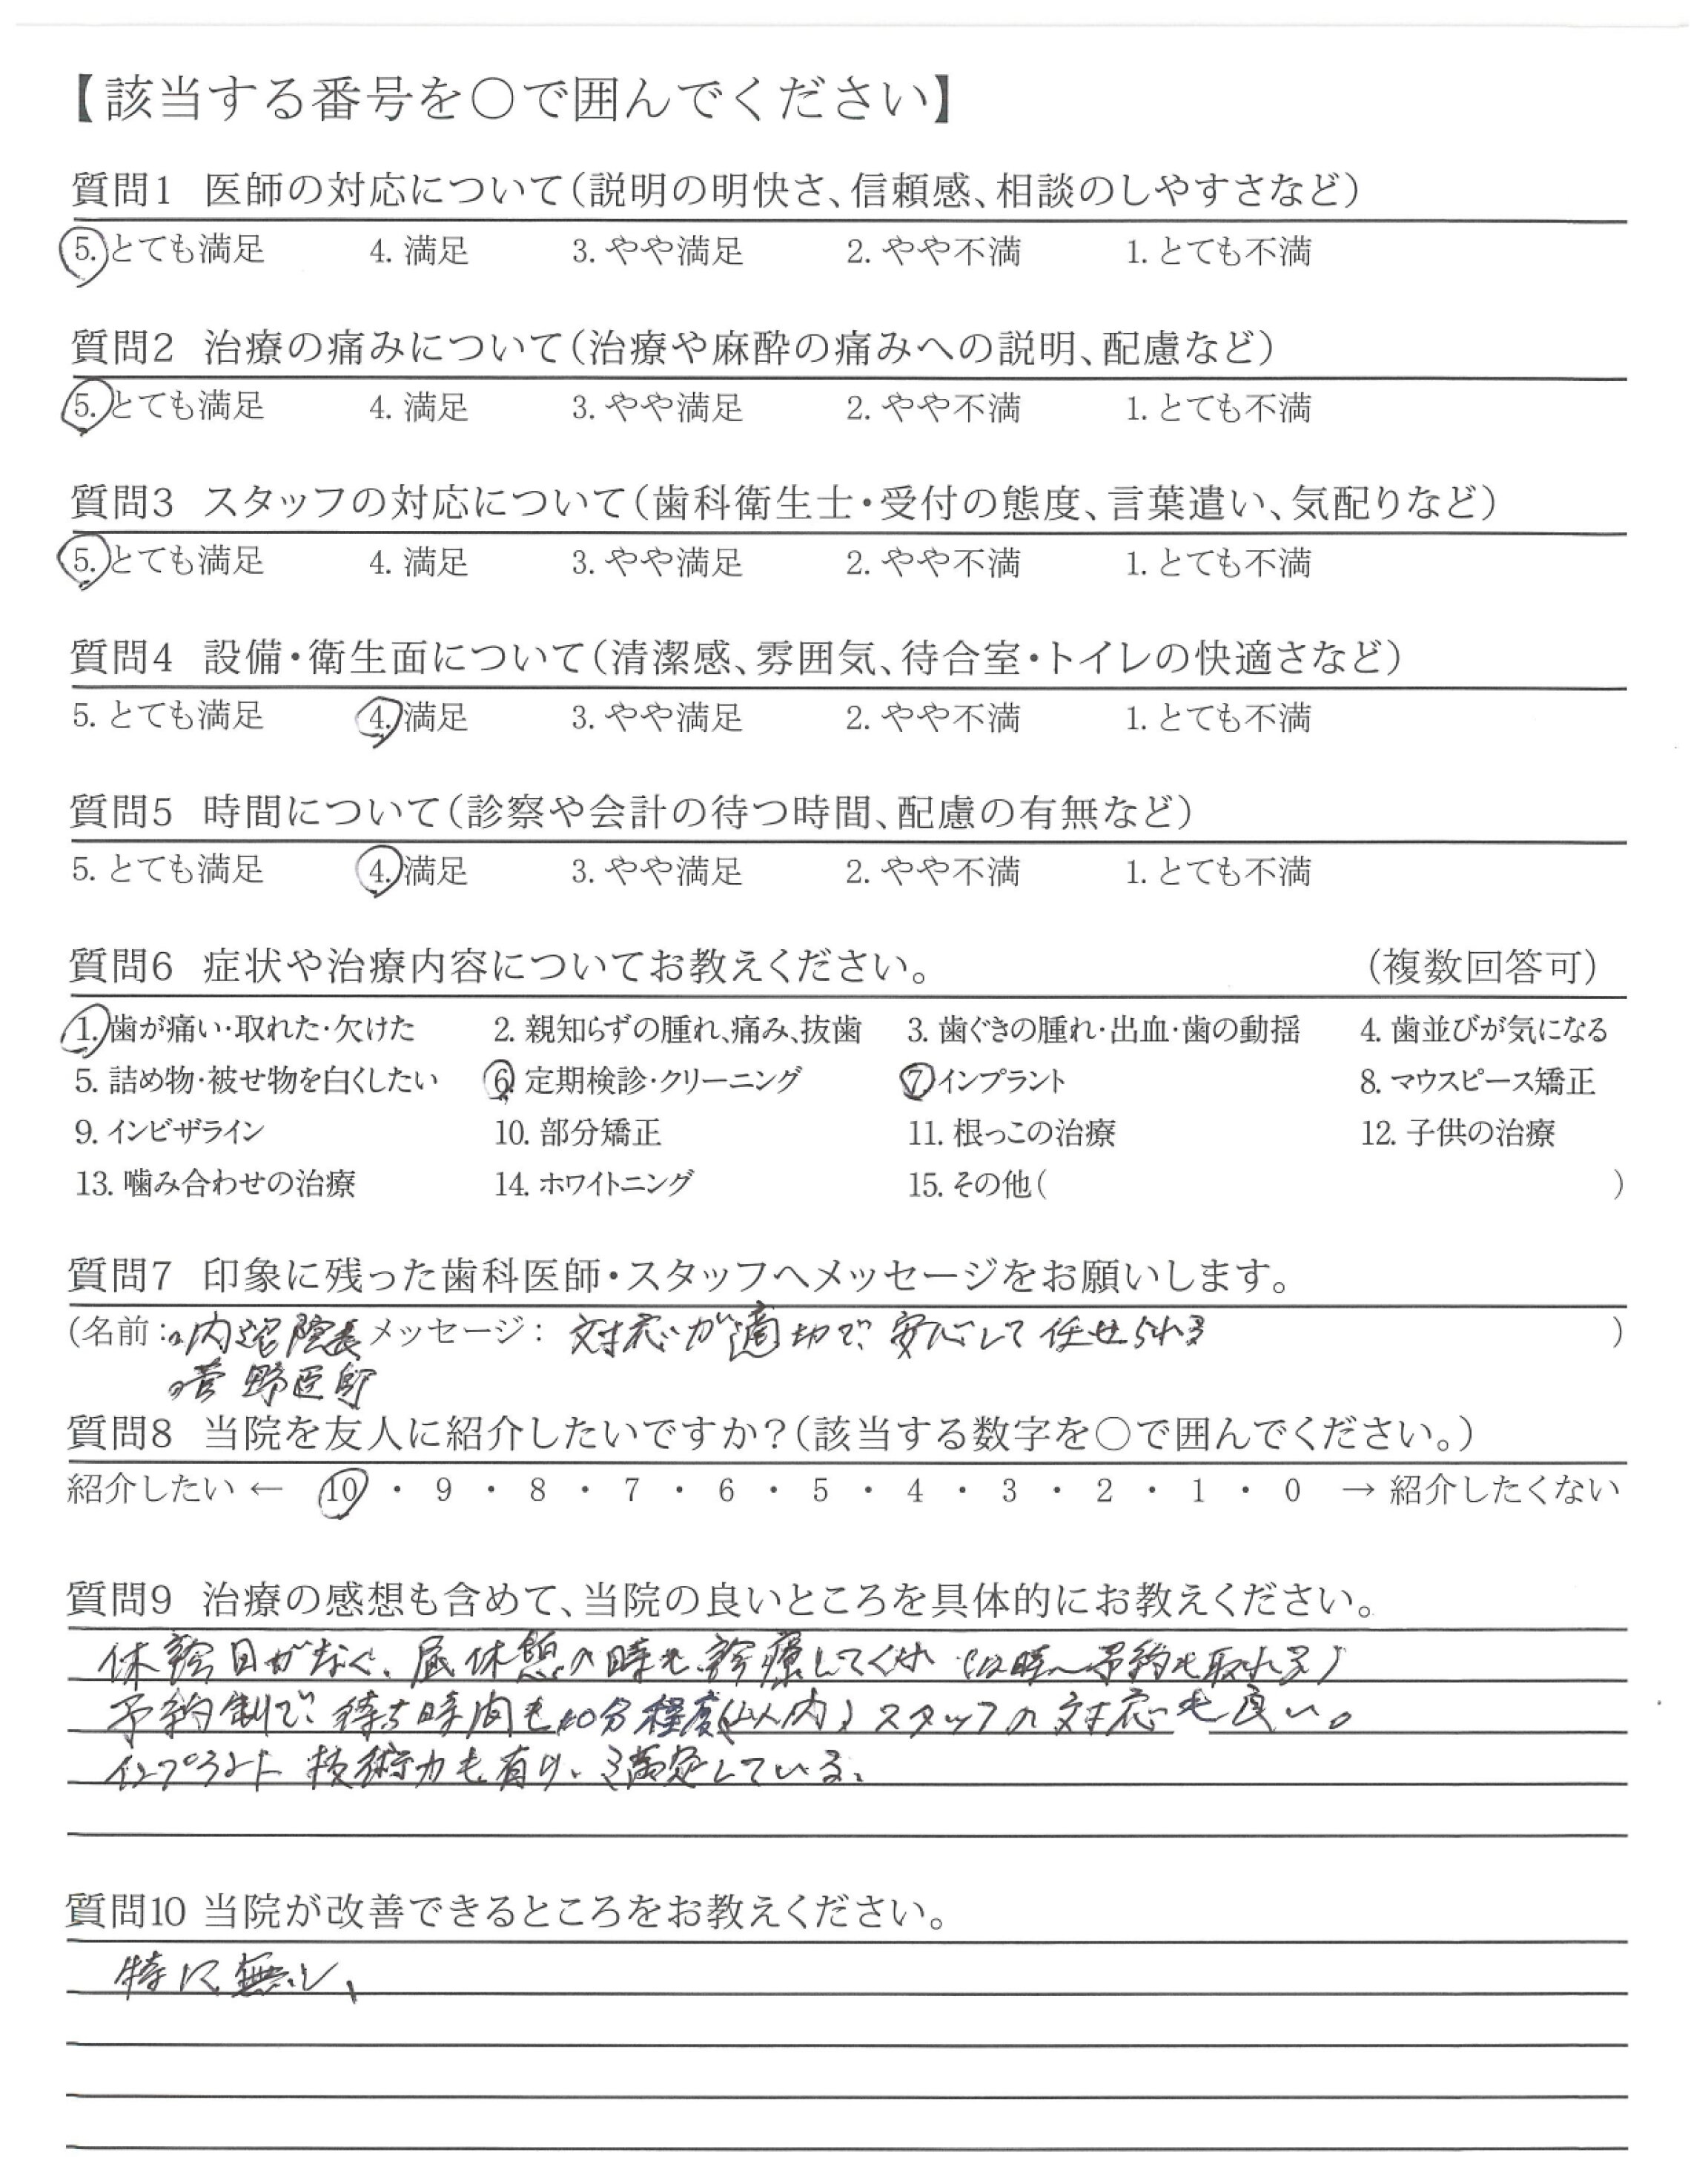 【該当する番号を〇で囲んでください】
質問1 医師の対応について(説明の明快さ、信頼感、相談のしやすさなど)
5. とても満足 4. 満足 3. やや満足 2. やや不満 1. とても不満
質問2 治療の痛みについて(治療や麻酔の痛みへの説明、配慮など)
5. とても満足 4. 満足 3. やや満足 2. やや不満 1. とても不満
質問3 スタッフの対応について(歯科衛生士・受付の態度、言葉遣い、気配りなど)
5. とても満足 4. 満足 3. やや満足 2. やや不満 1. とても不満
質問4 設備・衛生面について(清潔感、雰囲気、待合室・トイレの快適さなど)
5. とても満足 4. 満足 3. やや満足 2. やや不満 1. とても不満
質問5 時間について(診察や会計の待つ時間、配慮の有無など)
5. とても満足 4. 満足 3. やや満足 2. やや不満 1. とても不満
質問6 症状や治療内容についてお教えください。 (複数回答可)
1. 歯が痛い・取れた・欠けた 2. 親知らずの腫れ、痛み、抜歯 3. 歯ぐきの腫れ・出血・歯の動揺 4. 歯並びが気になる
5. 詰め物・被せ物を白くしたい 6. 定期検診・クリーニング 7. インプラント 8. マウスピース矯正
9. インビザライン 10. 部分矯正 11. 根っこの治療 12. 子供の治療
13. 噛み合わせの治療 14. ホワイトニング 15. その他( )
質問7 印象に残った歯科医師・スタッフへメッセージをお願いします。
(名前: 院長 メッセージ: 対応が適切で、安心して任せられる )
菅野医師
質問8 当院を友人に紹介したいですか?(該当する数字を〇で囲んでください。)
紹介したい ← 10 ・ 9 ・ 8 ・ 7 ・ 6 ・ 5 ・ 4 ・ 3 ・ 2 ・ 1 ・ 0 → 紹介したくない
質問9 治療の感想も含めて、当院の良いところを具体的にお教えください。
休診日がなく、昼休憩の時も診療してくれ(12時～予約も取れる)
予約制で待ち時間も10分程度(以内)スタッフの対応も良い。
インプラント技術力も有り、満足している。
質問10 当院が改善できるところをお教えください。
特に無し、